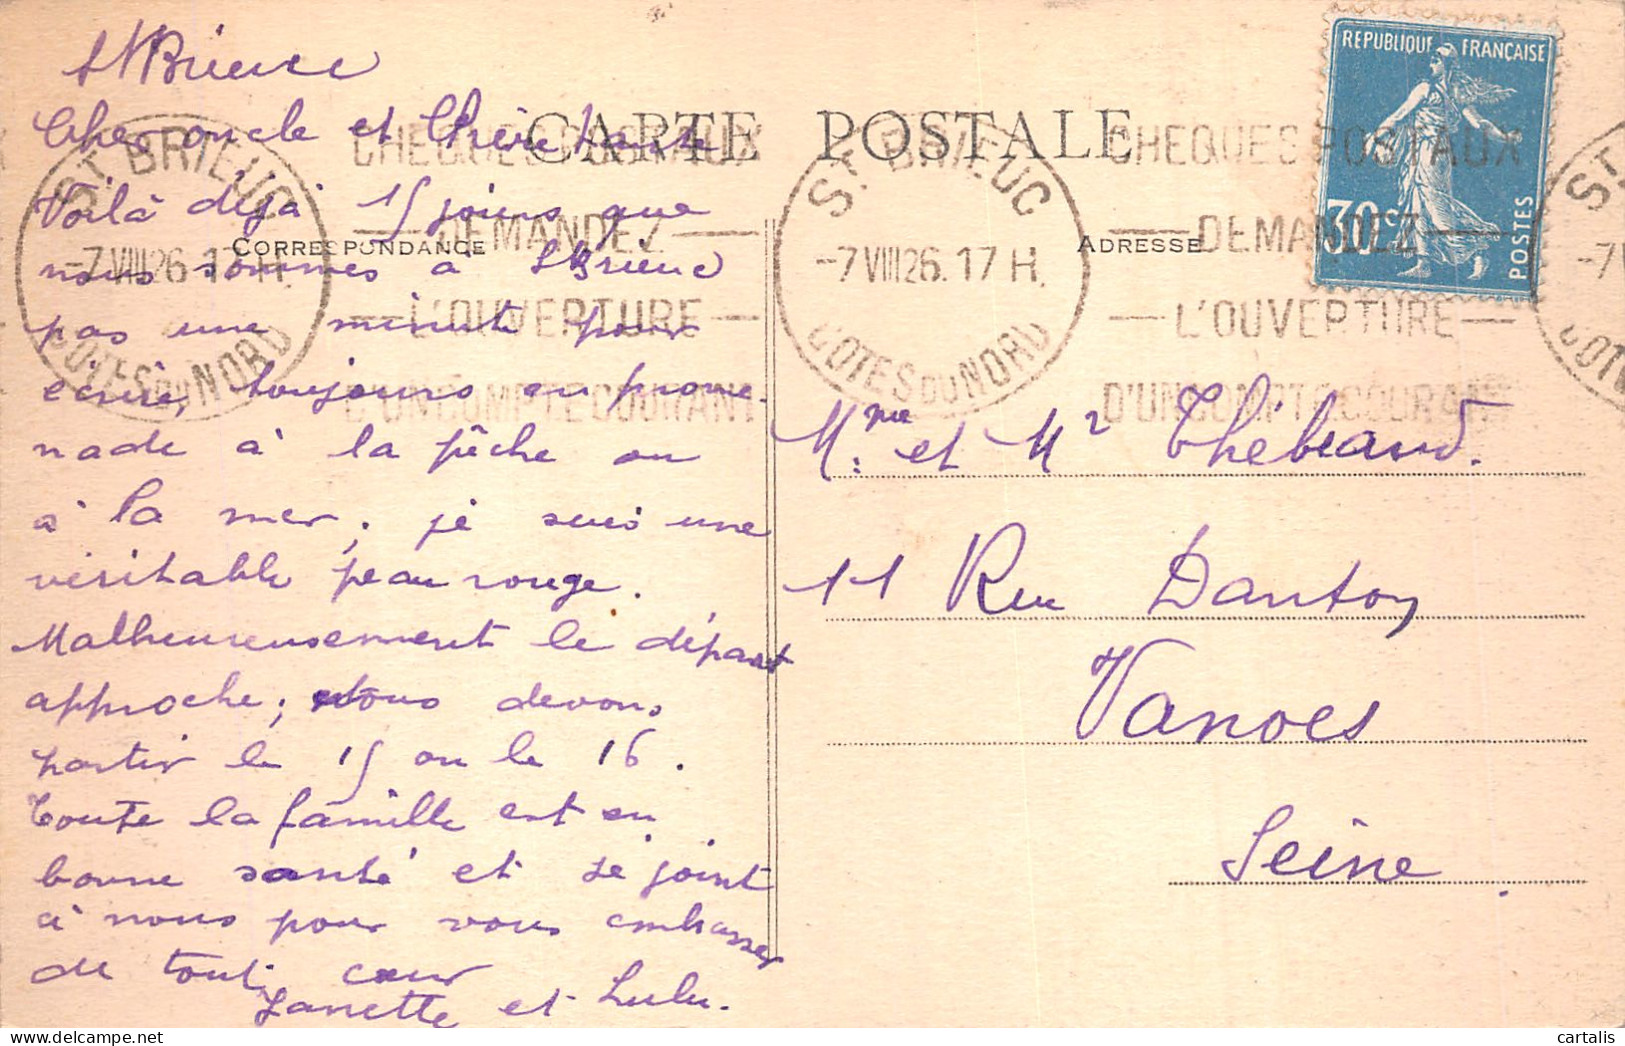 St Brieuc
Cher oncle et Chère tante
Voilà déjà 15 jours que
nous sommes à St Brieuc
pas une minute pour
écrire, toujours en prome-
nade à la pêche ou
à la mer, je suis une
véritable peau rouge.
Malheureusement le départ
approche; nous devons
partir le 15 ou le 16.
Toute la famille est en
bonne santé et se joint
à nous pour vous embrasser
de tout cœur
Janette et Lulu.
CARTE POSTALE
CORRESPONDANCE
ADRESSE
ST BRIEUC
-7 VIII 26. 17 H.
COTES DU NORD
CHEQUES POSTAUX
DEMANDEZ
L'OUVERTURE
D'UN COMPTE COURANT
ST BRIEUC
-7 VIII 26. 17 H.
COTES DU NORD
CHEQUES POSTAUX
DEMANDEZ
L'OUVERTURE
D'UN COMPTE COURANT
REPUBLIQUE FRANÇAISE
30c
POSTES
Mme et Mr Thébeaud.
11 Rue Danton
Vanves
Seine.
cartalis